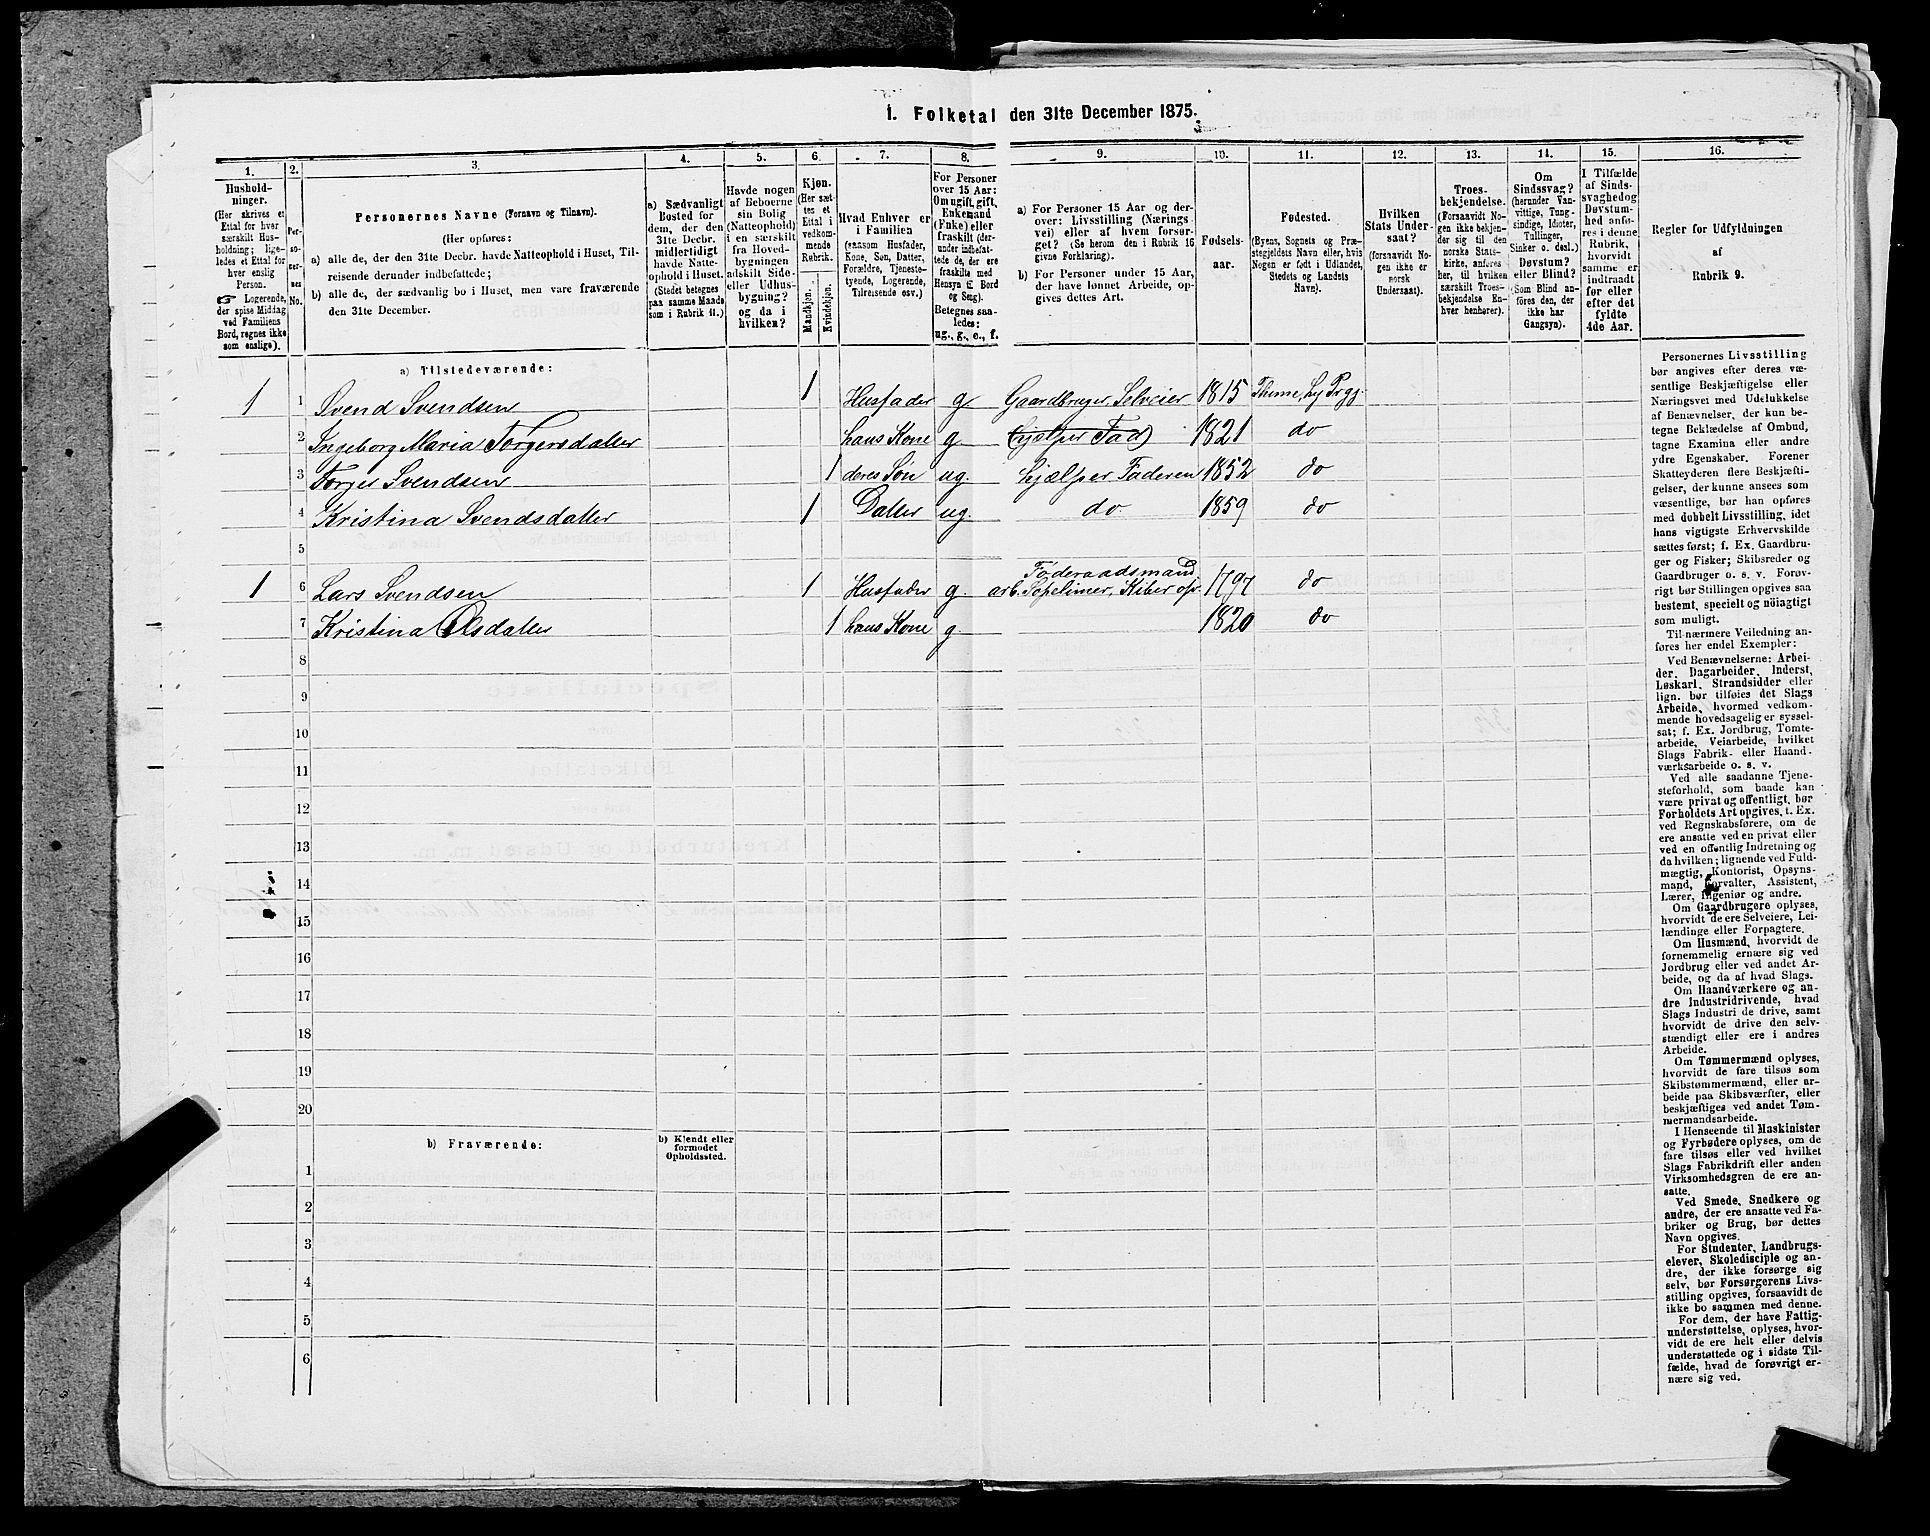 1. Folketal den 31te December 1875.
1.
2.
3.
4.
5.
6.
7.
8.
9.
10.
11.
12.
13.
14.
15.
16.
Hushold-
ninger.
(Her skrives et
Ettal for hver
særskilt Hus-
holdning; lige-
ledes et Ettal for
hver enslig
Person.
☞ Logerende,
der spise Middag
ved Familiens
Bord, regnes ikke
som enslige).
Per-
so-
ner-
nes
No.
Personernes Navne (Fornavn og Tilnavn).
(Her opføres:
a) alle de, der den 31te Decbr. havde Natteophold i Huset, Til-
reisende derunder indbefattede;
b) alle de, der sædvanlig bo i Huset, men vare fraværende
den 31te December.
a) Sædvanligt
Bosted for
dem, der den
31te Decbr.
midlertidigt
havde Natte-
ophold i Huset.
(Stedet betegnes
paa samme Maade
som i Rubrik 11.)
Havde nogen
af Beboerne
sin Bolig
(Natteophold)
i en særskilt
fra Hoved-
bygningen
adskilt Side-
eller Udhus-
bygning?
og da i
hvilken?
Kjøn.
(Her sæt-
tes et
Ettal i
vedkom-
mende
Rubrik.
Mandkjøn.
Kvindekjøn.
Hvad Enhver er
i Familien
(saasom Husfader,
Kone, Søn, Datter,
Forældre, Tjeneste-
tyende, Logerende,
Tilreisende osv.)
For Personer
over 15 Aar:
Om ugift, gift,
Enkemand
(Enke) eller
fraskilt (der-
under indbefat-
tede de, der ere
fraskilte med
Hensyn til Bord
og Seng).
Betegnes saa-
ledes:
ug., g., e., f.
a) For Personer 15 Aar og der-
over: Livsstilling (Nærings
vei) eller af hvem forsør-
get? (Se herom den i Rubrik 16
givne Forklaring).
b) For Personer under 15 Aar,
der have lønnet Arbeide, op-
gives dettes Art.
Fødsels-
aar.
Fødested.
(Byens, Sognets og Præ-
stegjeldets Navn eller, hvis
Nogen er født i Udlandet,
Stedets og Landets
Navn).
Hvilken
Stats Under-
saat?
(forsaavidt No-
gen ikke er
norsk
Undersaat).
Troes-
bekjendelse.
(Forsaavidt No-
gen ikke bekjen-
der sig til den
norske Stats-
kirke, anføres
her, til hvilken
særskilt Troes-
bekjendelse En-
hver henhører).
Om
Sindssvag?
(herunder Van-
vittige, Tung-
sindige, Idioter,
Tullinger,
Sinker o. desl.)
Døvstum?
eller Blind?
(Som Blind an-
føres den, der
ikke har
Gangsyn).
I Tilfælde
af Sinds-
svaghed og
Døvstum-
hed anfø-
res i denne
Rubrik,
hvorvidt
samme er
indtraadt
før eller
efter det
fyldte
4de Aar.
Regler for Udfyldningen
af
Rubrik 9.
a) Tilstedeværende:
1 1 Svend Svendsen 1 Husfader g Gaardbruger, Selveier 1815
2 Ingeborg Maria Torgersdatter hans Kone g (hjælper Fad) 1821 do
3 Torger Svendsen 1 deres Søn ug. hjælper Faderen 1852 do
4 Kristina Svendsdatter 1 Datter ug. do. 1859 do
5
1 6 Lars Svendsen 1 Husfader g. Føderaadsmand 1797 do
7 Kristina Olsdatter 1 hans Kone g. 1820 do
8
9
10
11
12
13
14
15
16
17
18
19
20
b) Fraværende:
b) Kjendt eller
formodet
Opholdssted.
1
2
3
4
5
6
Personernes Livsstilling
bør angives efter deres væ-
sentlige Beskjæftigelse eller
Næringsvei med Udelukkelse
af Benævnelser, der kun be-
tegne Beklædelse af Ombud,
tagne Examina eller andre
ydre Egenskaber. Forener
Skatteyderen flere Beskjæfti-
gelser, der kunne ansees som
væsentlige, bør han opføres
med dobbelt Livsstilling, idet
hans vigtigste Erhvervskilde
sættes først; f. Ex. Gaardbru-
ger og Fisker; Skibsreder og
Gaardbruger o. s. v. Forøv-
rigt bør Stillingen opgives saa
bestemt, specielt og nøiagtigt
som muligt.
Til nærmere Veiledning an-
føres her endel Exempler:
Ved Benævnelserne: Arbei-
der, Dagarbeider, Inderst,
Løskarl, Strandsidder eller
lign. bør tilføies det Slags
Arbeide, hvormed vedkom-
mende hovedsagelig er syssel-
sat; f. Ex. Jordbrug, Tomte-
arbeide, Veiarbeide, hvilket
Slags Fabrik- eller Haand-
værksarbeide o. s. v.
Ved alle saadanne Tjene-
steforhold, som baade kan
være privat og offentligt, bør
Forholdets Art opgives, t. Ex.
ved Regnskabsførere, om de
ere ansatte ved en privat eller
ved en offentlig Indretning og
da hvilken; lignende ved Fuld-
mægtig, Kontorist, Opsyns-
mand, Forvalter, Assistent,
Lærer, Ingeniør og andre.
Om Gaardbrugere oplyses,
hvorvidt de ere Selveiere, Lei-
lændinge eller Forpagtere.
Om Husmænd, hvorvidt de
fornemmelig ernære sig ved
Jordbrug eller ved andet Ar-
beide, og da af hvad Slags.
Om Haandværkere og an-
dre Industridrivende, hvad
Slags Industri de drive, samt
hvorvidt de drive den selv-
stændigt eller ere i andres
Arbeide.
Om Tømmermænd oplyses,
hvorvidt de fare tilsøs som
Skibstømmermænd, eller ar-
beide paa Skibsværfter, eller
beskjæftiges ved andet Tøm-
mermandsarbeide.
I Henseende til Maskinister
og Fyrbødere oplyses, om de
fare tilsøs eller ved hvilket
Slags Fabrikdrift eller anden
Virksomhedsgren de ere an-
satte.
Ved Smede, Snedkere og
andre, der ere ansatte ved Fa-
briker og Brug, bør dettes
Navn opgives.
For Studenter, Landbrugs-
elever, Skoledisciple og an-
dre, der ikke forsørge sig
selv, bør Forsørgerens Livs-
stilling opgives, forsaavidt de
ikke bo sammen med denne.
For dem, der have Fattig-
understøttelse, oplyses, hvor-
vidt de ere helt eller delvis
understøttede og i sidste Til-
fælde, hvad de forøvrigt er-
nære sig ved.